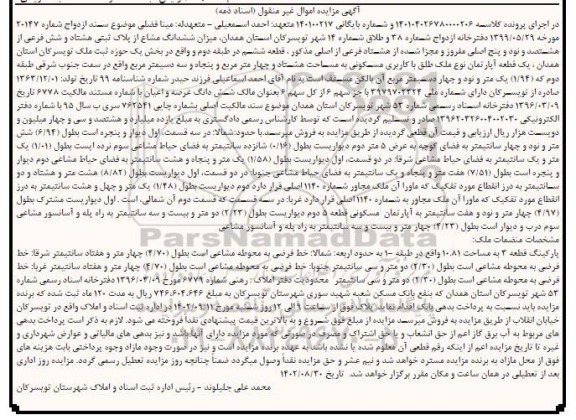 آگهی مزایده اموال غیر منقول (اسناد ذمه)
در اجرای پرونده کلاسه ۱۴۰۱۰۴۰۲۶۷۸۰۰۰۰۲۰۶ و شماره بایگانی ۱۴۰۱۰۰۲۱۷ متعهد: احمد اسمعیلی - متعهدله: مینا فضلی موضوع سند ازدواج شماره ۲۰۱۴۷
مورخه ۱۳۹۹/۰۵/۲۹ دفترخانه ازدواج شماره ۳۸ و طلاق شماره ۱۴ شهر تویسرکان استان همدان، میزان ششدانگ مشاع از پلاک ثبتی هشتاد و شش فرعی از
هشتصد و نود و پنج اصلی مفروز و مجزا شده از هشتاد فرعی از اصلی مذکور، قطعه ششم در طبقه دوم و واقع در بخش یک حوزه ثبت ملک تویسرکان استان
همدان، یک قطعه آپارتمان نوع ملک طلق با کاربری مسکونی به مساحت هشتاد و چهار متر مربع و پنجاه و سه دسیمتر مربع واقع در سمت جنوب شرقی طبقه
دوم که (۱/۹۴) یک متر و نود و چهار دسیمتر مربع آن بالکن است به نام آقای احمد اسماعیلی فرزند حیدر شماره شناسنامه ۹۹ تاریخ تولد: ۱۳۶۳/۱۲/۰۱
صادره از تویسرکان دارای شماره ملی ۳۹۷۹۷۰۲۳۲۴ با جز سهم ۶ از کل سهم ۶ بعنوان مالک شش دانگ عرصه و اعیان با شماره مستند مالکیت ۶۷۷۸ تاریخ
۱۳۹۶/۰۳/۰۹ دفترخانه اسناد رسمی شماره ۵۳ شهر تویسرکان استان همدان موضوع سند مالکیت اصلی بشماره چاپی ۷۶۲۵۴۱ سری ب سال ۹۵ با شماره دفتر
الکترونیکی ۱۳۹۶۲۰۳۲۶۰۰۴۰۰۲۰۳۰ صادر و تسلیم گردیده است که توسط کارشناس رسمی دادگستری به مبلغ یازده میلیارد و هشتصد و سی و چهار میلیون و
دویست هزار ریال ارزیابی و قیمت آن قطعی گردیده از طریق مزایده به فروش میرسد. با حدود: شمالا: در سه قسمت، اول دیوار و پنجره است بطول (۶/۹۴) شش
متر و نود و چهار سانتیمتر به فضای کوچه به عرض ۵ متر دوم دیواریست بطول (۰/۱۶) شانزده سانتیمتر به فضای حیاط مشاعی سوم نرده ایست بطول (۱/۰۱) یک
متر و یک سانتیمتر به فضای حیاط مشاعی شرقا: در دو قسمت، اول دیواریست بطول (۱/۵۸) یک متر و پنجاه و هشت سانتیمتر به فضای حیاط مشاعی دوم دیوار
و پنجره است بطول (۷/۵۱) هفت متر و پنجاه و یک سانتیمتر به فضای حیاط مشاعی جنوبا: در دو قسمت، اول دیواریست بطول (۸/۸۲) هشت متر و هشتاد و دو
سانتیمتر به درز انقطاع مورد تفکیک که ماورا آن ملک مجاور شماره ۱۱۴۰ اصلی قرار دارد دوم دیواریست بطول (۱/۴۸) یک متر و چهل و هشت سانتیمتر به درز
انقطاع مورد تفکیک که ماورا آن ملک مجاور به شماره ۱۱۴۰ اصلی قرار دارد غربا: در سه قسمت که قسمت دوم آن شمالی است. اول دیواریست مشترک بطول
(۴/۹۷) چهار متر و نود و هفت سانتیمتر به آپارتمان مسکونی قطعه ۵ دوم دیواریست بطول (۲/۲۳) دو متر و بیست و سه سانتیمتر به راه پله و آسانسور مشاعی
سوم درب و دیوار است بطول (۴/۲۳) چهار متر و بیست و سه سانتیمتر به راه پله و آسانسور مشاعی
مشخصات منضمات ملک:
پارکینگ قطعه ۳ به مساحت ۱۰.۸۱ واقع در طبقه ۱- به حدود اربعه: شمالا: خط فرضی به محوطه مشاعی است بطول (۴/۷۰) چهار متر و هفتاد سانتیمتر شرقا: خط
فرضی به محوطه مشاعی است بطول (۲/۳۰) دو متر و سی سانتیمتر جنوبا: خط فرضی به محوطه مشاعی است بطول (۴/۷۰) چهار متر و هفتاد سانتیمتر غربا: خط
فرضی به محوطه مشاعی است بطول (۲/۳۰) دو متر و سی سانتیمتر محدودیت دفتر املاک: رهنی شماره ۶۷۷۹ مورخ ۱۳۹۶/۰۳/۰۹ دفترخانه اسناد رسمی شماره
۵۳ شهر تویسرکان استان همدان که بنفع بانک مسکن شعبه شهید سوری شهرستان تویسرکان به مبلغ ۷۴۶.۶۰۴.۶۴۶ ریال به مدت ۱۲۰ ماه ثبت شده که برنده
مزایده باید نسبت به پرداخت بدهی بانک اقدام نماید پلاک فوق از ساعت ۹ الی ۱۲ روز شنبه مورخ ۱۴۰۲/۰۹/۱۱ در اداره ثبت اسناد و املاک واقع در تویسرکان
خیابان انقلاب از طریق مزایده به فروش میرسد مزایده از مبلغ فوق شروع و به بالاترین قیمت پیشنهادی نقدا فروخته می شود. لازم به ذکر است پرداخت بدهی
های مربوط به آب برق گاز اعم از حق انشعاب و یا حق اشتراک و مصرف در صورتی که مورد مزایده دارای آنها باشد و نیز بدهی های مالیاتی و عوارض شهرداری و
غیره تا تاریخ مزایده اعم از اینکه رقم قطعی آن معلوم شده یا نشده باشد به عهده برنده مزایده است و نیز در صورت وجود مازاد وجوه پرداختی بابت هزینه های
فوق از محل مازاد به برنده مزایده مسترد خواهد شد و نیم عشر و حق مزایده نقدا وصول میگردد ضمنا چنانچه روز مزایده تعطیل رسمی گردد. مزایده روز اداری
بعد از تعطیلی در همان ساعت و مکان مقرر برگزار خواهد شد. تاریخ ۱۴۰۲/۰۸/۳۰
محمد علی جلیلوند - رئیس اداره ثبت اسناد و املاک شهرستان تویسرکان
ParsNamadData